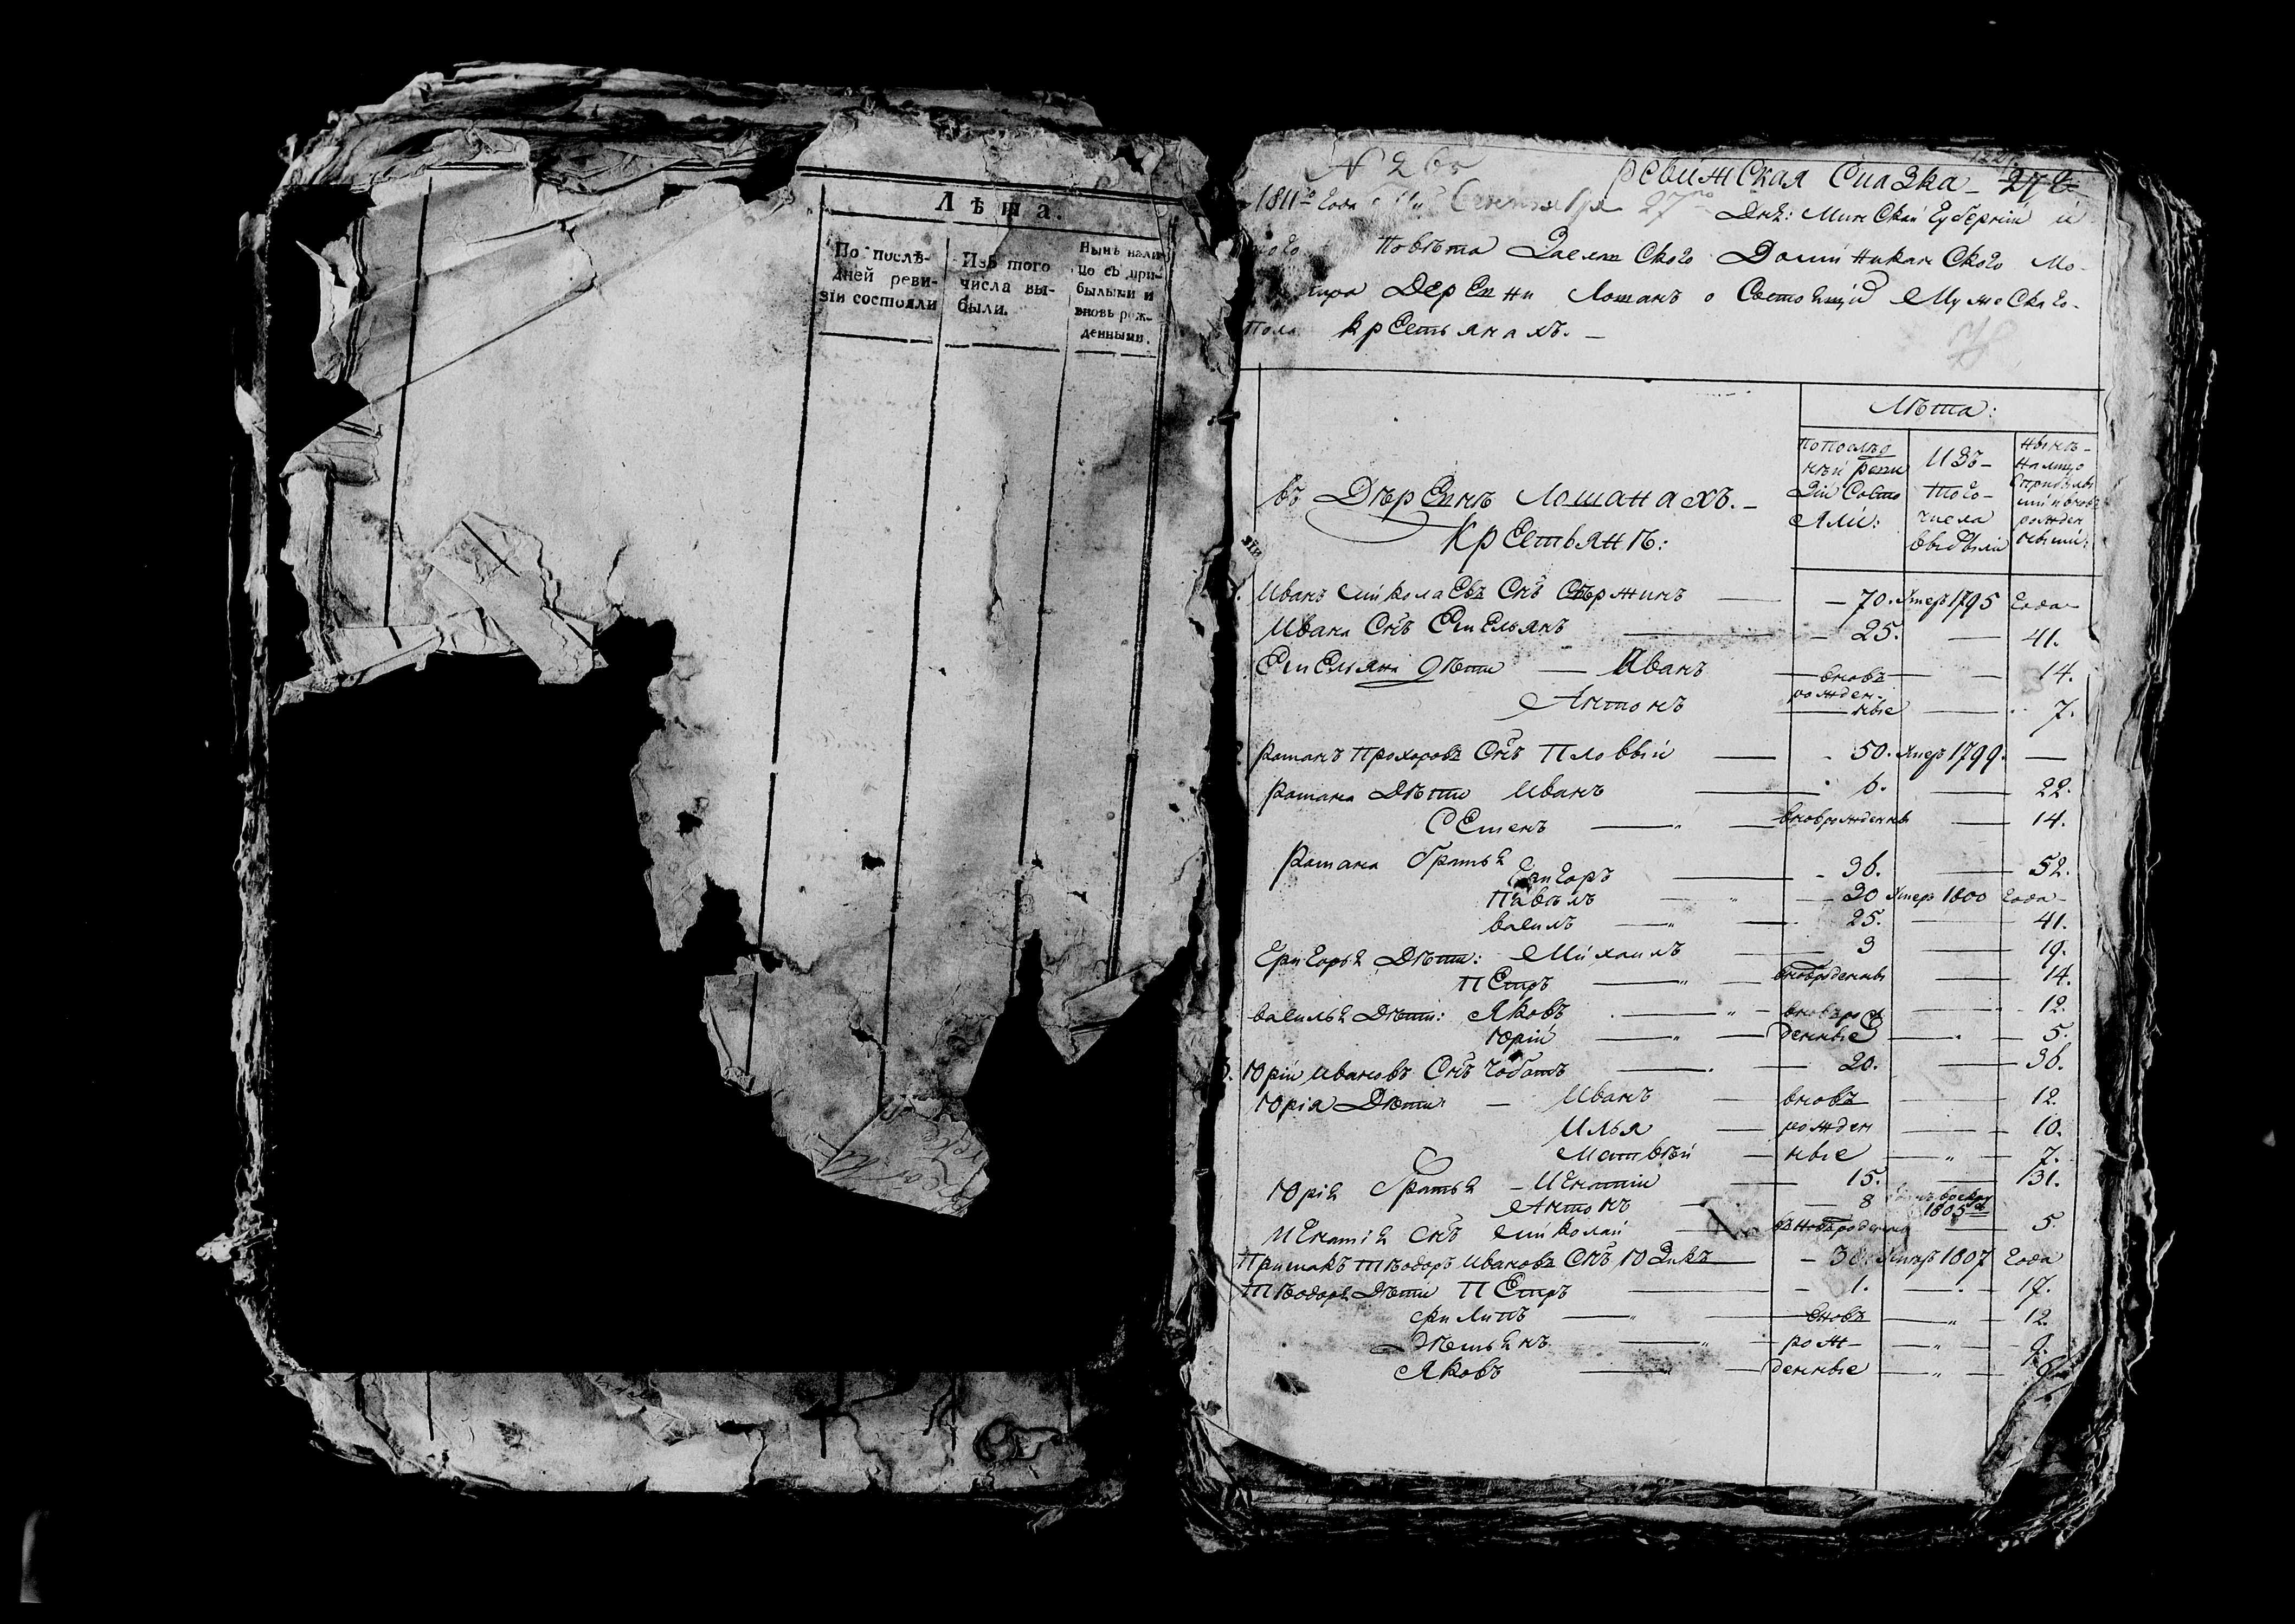 Лѣта.
По послѣ-
дней реви-
зіи состояли
Изъ того
числа вы-
были.
Нынѣ нали-
цо съ при-
былыми и
вновь рож-
денными.
№ 26
Ревижская Сказка
1811го Года Сентября 27го Дня: Минской Губерніи и
повѣта Доминиканского Мо-
Деревни Лошанъ о Состоящид Мужеска го-
Пола Крестьянахъ. —
Лѣта:
Попослѣд
нѣй реви
Зіи Состо
Яли:
ИЗЪ-
Того-
числа
выбыли
Нынѣ-
Налицо
Сприбылы
ми ивновь
рожден
ными:
въ Дѣревнѣ Лошанахъ. —
Крестьянъ:
Иванъ Миколаевъ Снъ Сѣржинъ — 70. Умеръ 1795 Года
Ивана Снъ Емельянъ — 25. — 41.
Емельяна Дѣти — Иванъ — вновъ — 14.
Антонъ рожден-ные — 7.
Романъ Прохоровъ Снъ Пловвый — 50. Умеръ 1799. —
Романа Дѣти Иванъ — 6. — 22.
Семенъ — вноврожденны — 14.
Романа Братья
Григоръ — 36. — 52.
Павелъ — 20 Умеръ 1800 Года
Василь — 25. — 41.
Григорья Дѣти: Михаилъ — 3 — 19.
Петръ — — 14.
Василья Дѣти: Яковъ — вновъро — 12.
Юрій — денные — 5.
Юрій Ивановъ Снъ Чоботъ — 20. — 36.
Юрія Дѣти — Иванъ — вновъ — 12.
Илья — рожден — 10.
Матвѣй — ные — 7.
Юрія Братья — Игнатій — 15. — 31.
Антонъ — 8 1805
Игнатія Снъ Миколай — 5.
Примакъ Тѣодоръ Ивановъ Снъ Юзикъ — Умеръ 1807 Года
Тѣодора Дѣти Петръ — 1. — 17.
Филипъ — вновъ — 12.
Дѣмьянъ — рож- — 9.
Яковъ — денные —